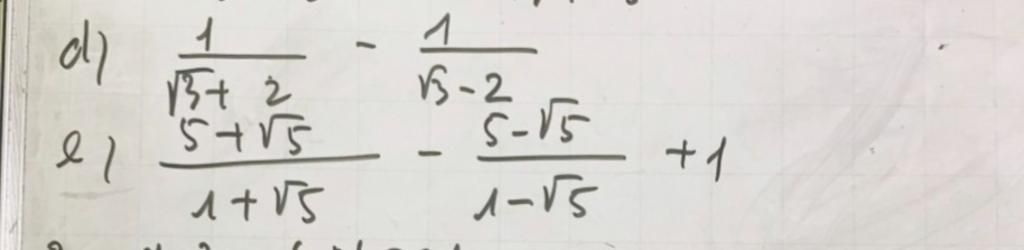 d) 1/(√3 + 2) - 1/(√3 - 2)
e) (5 + √5)/(1 + √5) - (5 - √5)/(1 - √5) + 1